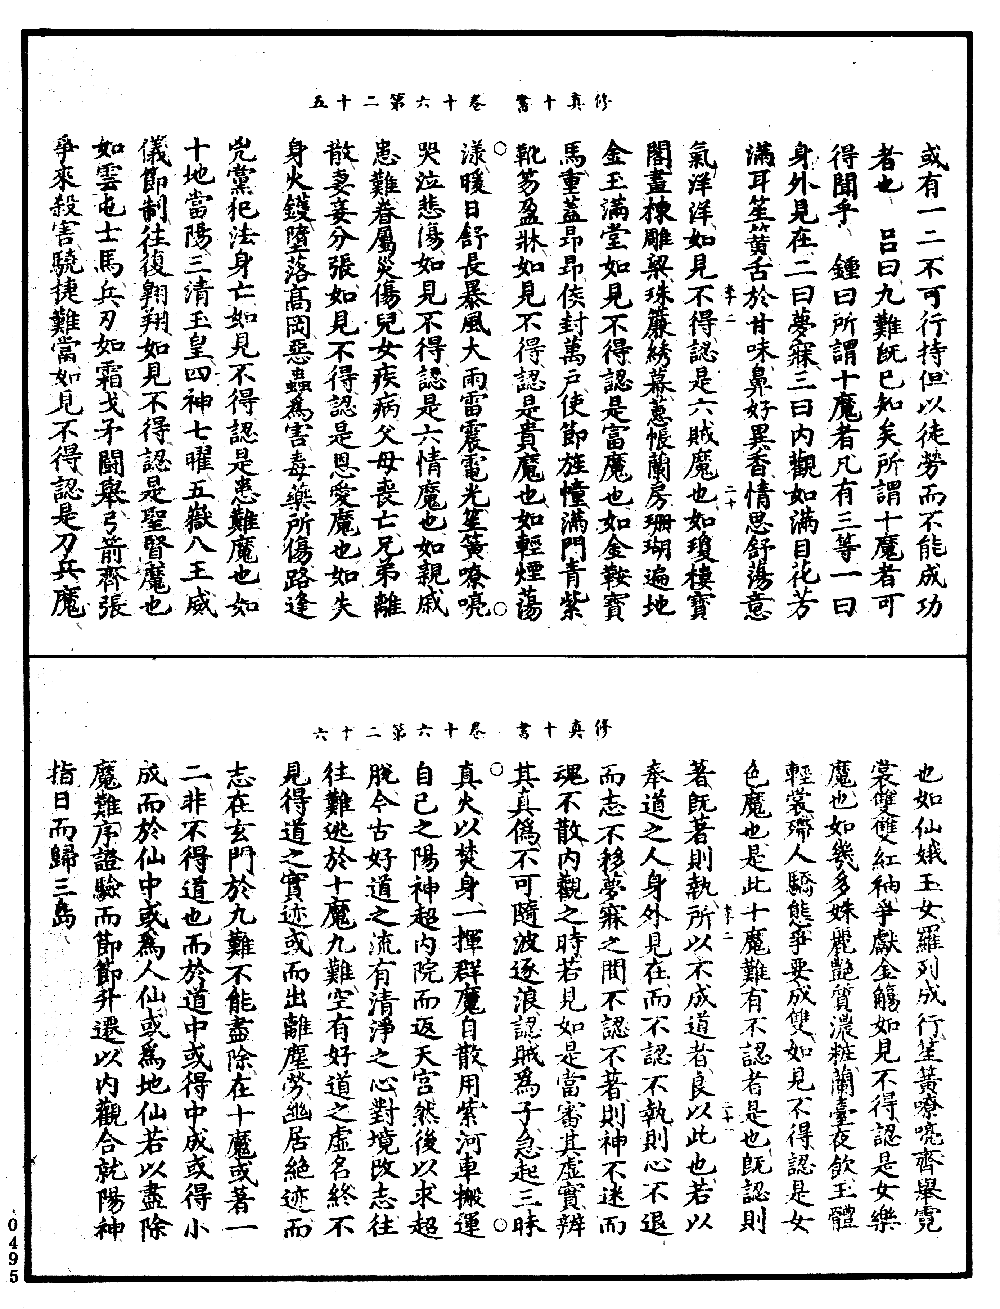 修真十書　卷十六第二十五
或有一二不可行持但以徒勞而不能成功
者也　呂曰九難既已知矣所謂十魔者可
得聞乎　鍾曰所謂十魔者凡有三等一曰
身外見在二曰夢寐三曰內觀如滿目花芳
滿耳笙簧舌於甘味鼻好異香情思舒蕩意
氣洋洋如見不得認是六賊魔也如瓊樓寶
閣畫棟雕梁珠簾綉幕蕙帳蘭房珊瑚遍地
金玉滿堂如見不得認是富魔也如金鞍寶
馬重蓋昂昂侯封萬戶使節旌幢滿門青紫
靴笏盈牀如見不得認是貴魔也如輕煙蕩
漾暖日舒長暴風大雨雷震電光笙簧嘹喨
哭泣悲傷如見不得認是六情魔也如親戚
患難眷屬災傷兒女疾病父母喪亡兄弟離
散妻妾分張如見不得認是恩愛魔也如失
身火鑊墮落高岡惡蟲為害毒藥所傷路逢
兇黨犯法身亡如見不得認是患難魔也如
十地當陽三清玉皇四神七曜五嶽八王威
儀節制往復翱翔如見不得認是聖賢魔也
如雲屯士馬兵刃如霜戈矛鬭舉弓箭齊張
爭來殺害驍捷難當如見不得認是刀兵魔
修真十書　卷十六第二十六
也如仙娥玉女羅列成行笙簧嘹喨齊舉霓
裳雙雙紅袖爭獻金觴如見不得認是女樂
魔也如幾多姝麗艷質濃粧蘭臺夜飲玉體
輕裳殢人驕態爭要成雙如見不得認是女
色魔也是此十魔難有不認者是也既認則
著既著則執所以不成道者良以此也若以
奉道之人身外見在而不認不執則心不退
而志不移夢寐之間不認不著則神不迷而
魂不散內觀之時若見如是當審其虛實辨
其真偽不可隨波逐浪認賊為子急起三昧
真火以焚身一揮群魔自散用紫河車搬運
自己之陽神超內院而返天宮然後以求超
脫今古好道之流有清淨之心對境改志往
往難逃於十魔九難空有好道之虛名終不
見得道之實迹或而出離塵勞幽居絕迹而
志在玄門於九難不能盡除在十魔或著一
二非不得道也而於道中或得中成或得小
成而於仙中或為人仙或為地仙若以盡除
魔難序證驗而節節升遷以內觀合就陽神
指日而歸三島
0495